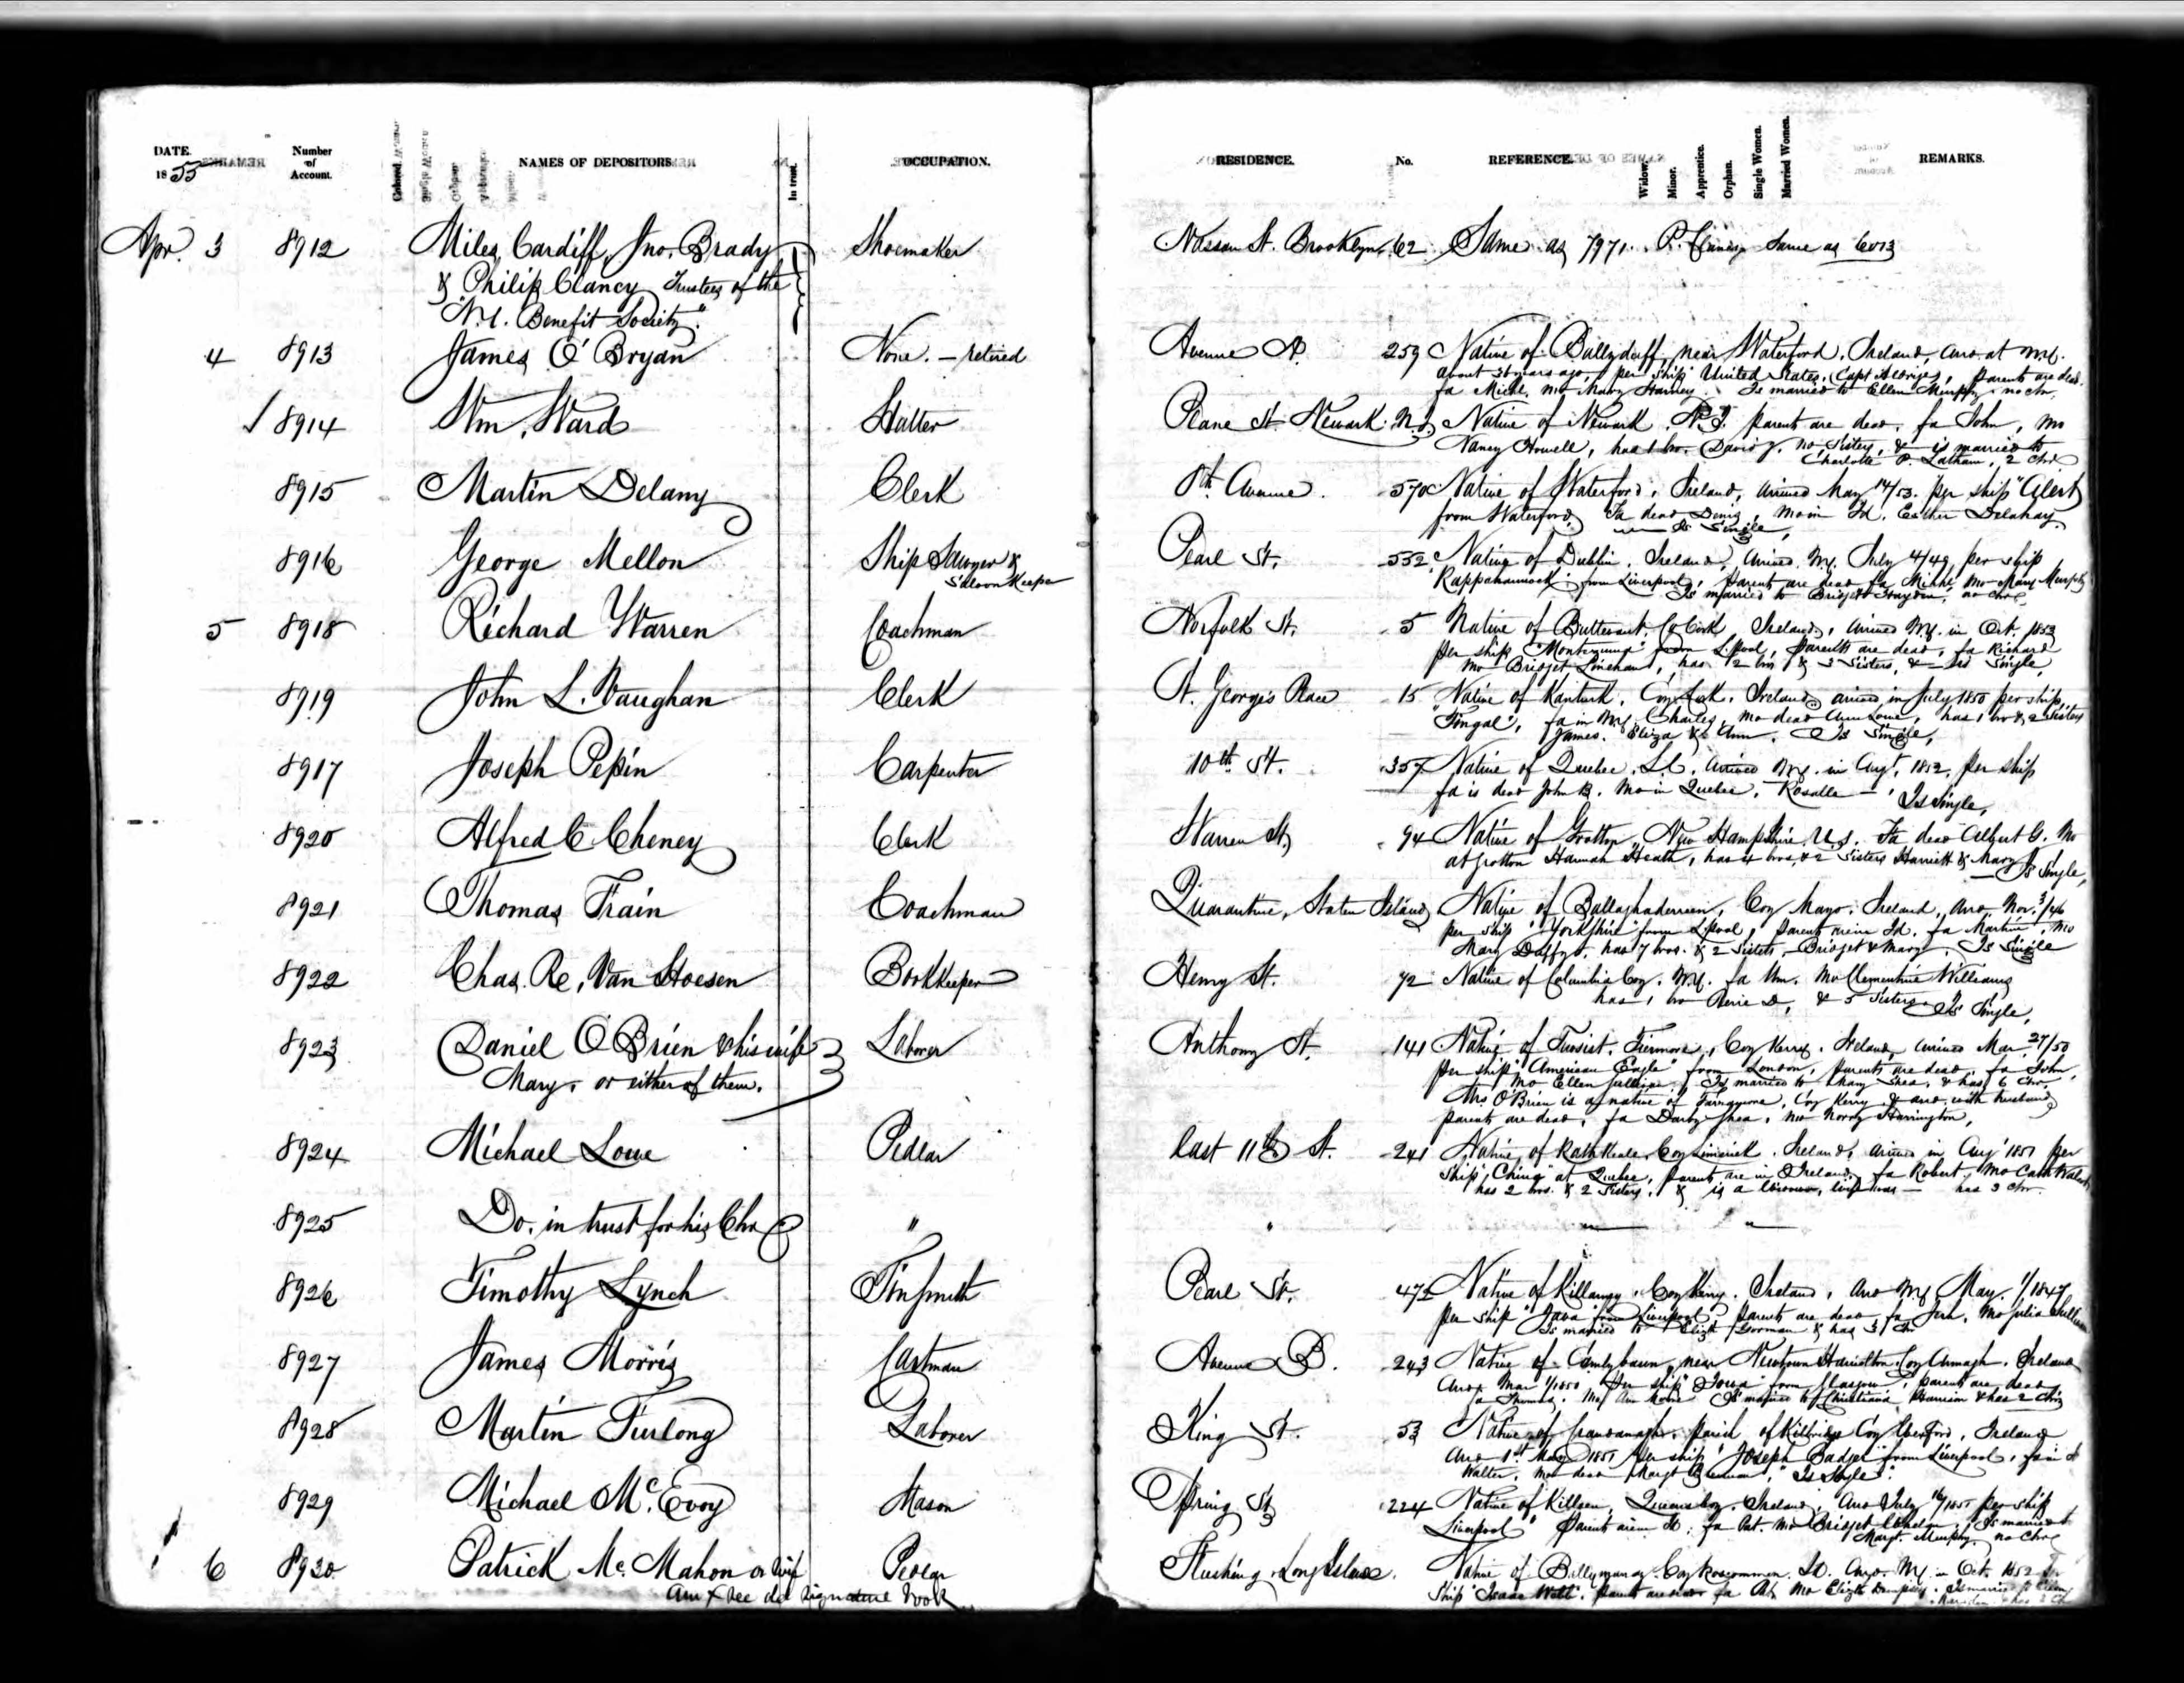 DATE.
1855
Number
of
Account.
Colored.
NAMES OF DEPOSITORS
In trust.
OCCUPATION.
RESIDENCE.
No.
REFERENCE.
Widow.
Minor.
Apprentice.
Orphan.
Single Women.
Married Women.
REMARKS.
Apr. 3 8912 Miles Cardiff, Jno. Brady Shoemaker Nassau St. Brooklyn 62 Same as 7971. P. Clancy same as 6013
& Philip Clancy Trustees of the
"N.Y. Benefit Society."
4 8913 James O'Bryan None. - retired Avenue A. 259 Native of Ballyduff, near Waterford, Ireland, arrd. at N.Y.
about years ago, per ship United States, (Capt. parents are dead.
fa Michl. mo Mary Is married to Ellen Murphy no chn.
/ 8914 Wm. Ward Hatter Plane St. Newark N.J. Native of Newark N.J. parents are dead, fa John, mo
Nancy Howell, has 1 bro. David J. no sisters, & is married to
Charlotte P. Latham, 2 chn.
8915 Martin Delany Clerk 8th Avenue. 570 Native of Waterford, Ireland, arrived May 14/53. per ship "Alert"
from Waterford, Fa dead Denis, mo in Id. Esther Delahay
Is Single,
8916 George Mellon Ship Sawyer & Pearl St. 552 Native of Dublin, Ireland, arrived N.Y. July 4/49, per ship
Saloon Keeper
Rappahannock from Liverpool, parents are dead fa Michl. mo Mary Murphy
Is married to Bridget no chn.
5 8918 Richard Warren Coachman Norfolk St. 5 Native of Buttevant, Co Cork, Ireland, arrived N.Y. in Oct. 1853
per ship "Montezuma" from L'pool, parents are dead, fa Richard
mo Bridget Linehan, has 2 bros & 3 Sisters, & is Single,
8919 John L. Vaughan Clerk St. George's Place 15 Native of Kanturk, Coy Cork, Ireland, arrived in July 1850 per ship
"Fingal", fa in N.Y. Charles, mo dead Ann Lowe, has 1 bro & 2 Sisters
James. Eliza & Ann. Is Single,
8917 Joseph Pepin Carpenter 10th St. 357 Native of Quebec, L.C. arrived N.Y. in Augt. 1852, per ship
fa is dead John B. mo in Quebec, Rosalle — Is Single,
8920 Alfred C Cheney Clerk Warren St. 94 Native of Grotton, New Hampshire U.S. Fa dead Albert G. Mo
at Grotton Hannah Heath, has 4 bros. & 2 Sisters Harriett & Mary Is Single,
8921 Thomas Train Coachman Quarantine, Staten Island Native of Ballaghaderreen, Coy Mayo, Ireland, arrd. Nov. 3/46
per ship "Yorkshire" from L'pool, parents are in Id. fa Martin, mo
Mary Duffy, has 7 bros. & 2 Sisters, Bridget & Mary. Is Single
8922 Chas. Re. Van Hoesen Bookkeeper Henry St. 72 Native of Columbia Coy. N.Y. fa Wm. mo Clementine Williams
has 1 bro D, & 5 Sisters Is Single,
8923 Daniel O'Brien & his wife Laborer Anthony St. 141 Native of Tuosist, Coy Kerry, Ireland, arrived Mar. 27/50
Mary, or either of them.
per ship "American Eagle" from London, parents are dead, fa John,
mo Ellen Is married to Mary Shea, & has 6 chn.
Mrs O'Brien is a native of Coy Kerry, & arrd. with husband
parents are dead, fa Darby Shea, mo Norry Harrington,
8924 Michael Lowe Pedlar East 11th St. 241 Native of Rathkeale, Coy Limerick, Ireland, arrived in Aug 1851 per
Ship "China" at Quebec, parents are in Ireland, fa Robert, mo Cath
has 2 bros. & 2 Sisters, & is a Widower, wife was — has 3 chn.
8925 Do. in trust for his Chn " " — " —
8926 Timothy Lynch Tinsmith Pearl St. 472 Native of Killarney, Coy Kerry, Ireland, arrd N.Y. May. 1/1847
per ship "Java" from Liverpool, parents are dead fa Jerh. mo Julia
Is married to Elizth Gorman & has 3 chn
8927 James Morris Cartman Avenue B. 243 Native of near Newtown Hamilton, Coy Armagh. Ireland
Arrd. Mar 1/1850 per ship "Iowa" from Glasgow, parents are dead
fa Thomas. mo Ann Is married to Christiana & has 2 chn
8928 Martin Furlong Laborer King St. 53 Native of parish of Kilbride Coy Wexford, Ireland
Arrd 1st May 1851 per ship "Joseph Badger" from Liverpool, fa in Id
Walter, mo dead Margt Brennan, Is Single.
8929 Michael McEvoy Mason Spring St 224 Native of Queens Coy. Ireland, Arrd July 16/1851 per ship
Liverpool" parents are in Id, fa Pat. mo Bridget Whelan, Is married to
Margt. Murphy. no chn
6 8930 Patrick McMahon or wife Pedlar Flushing, Long Island. Native of Coy Roscommon, Id. Arrd. N.Y. in Oct. 1852 per
Ann X see dd signature book
Ship "Isaac Webb". parents are dead fa Pat. mo Elizth Dempsey. Is married to